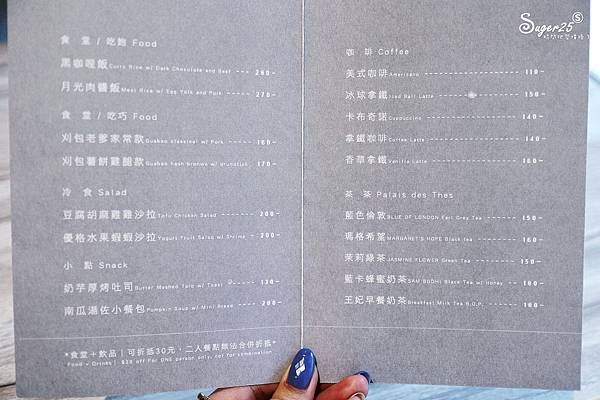 食 堂 / 吃飽 Food
黑咖哩飯 Curry Rice w/ Dark Chocolate and Beef 260-
月光肉醬飯 Meat Rice w/ Egg Yolk and Pork 270-
食 堂 / 吃巧 Food
刈包老爹家常款 Guabao classical w/ Pork 160-
刈包薯餅雞腿款 Guabao hash browns w/ drumstick 170-
冷 食 Salad
豆腐胡麻雞雞沙拉 Tofu Chicken Salad 200-
優格水果蝦蝦沙拉 Yogurt Fruit Salad w/ Shrimp 200-
小 點 Snack
奶芋厚烤吐司 Butter Mashed Taro w/ Toast 130-
南瓜湯佐小餐包 Pumpkin Soup w/ Mini Bread 200-
*食堂+飲品 | 可折抵30元,二人餐點無法合併折抵*
Food + Drinks | $30 off For ONE person only, not for combination
Suger25
咖 啡 Coffee
美式咖啡 Americano 110-
冰球拿鐵 Iced Ball Latte 150-
卡布奇諾 Cappuccino 140-
拿鐵咖啡 Coffee Latte 140-
香草拿鐵 Vanilla Latte 160-
茶 茶 Palais des Thes
藍色倫敦 BLUE OF LONDON Earl Grey Tea 150-
瑪格希望 MARGARET'S HOPE Black tea 160-
茉莉綠茶 JASMINE FLOWER Green Tea 150-
藍卡蜂蜜奶茶 SAM BODHI Black Tea w/ Honey 180-
王妃早餐奶茶 Breakfast Milk Tea B.O.P. 180-